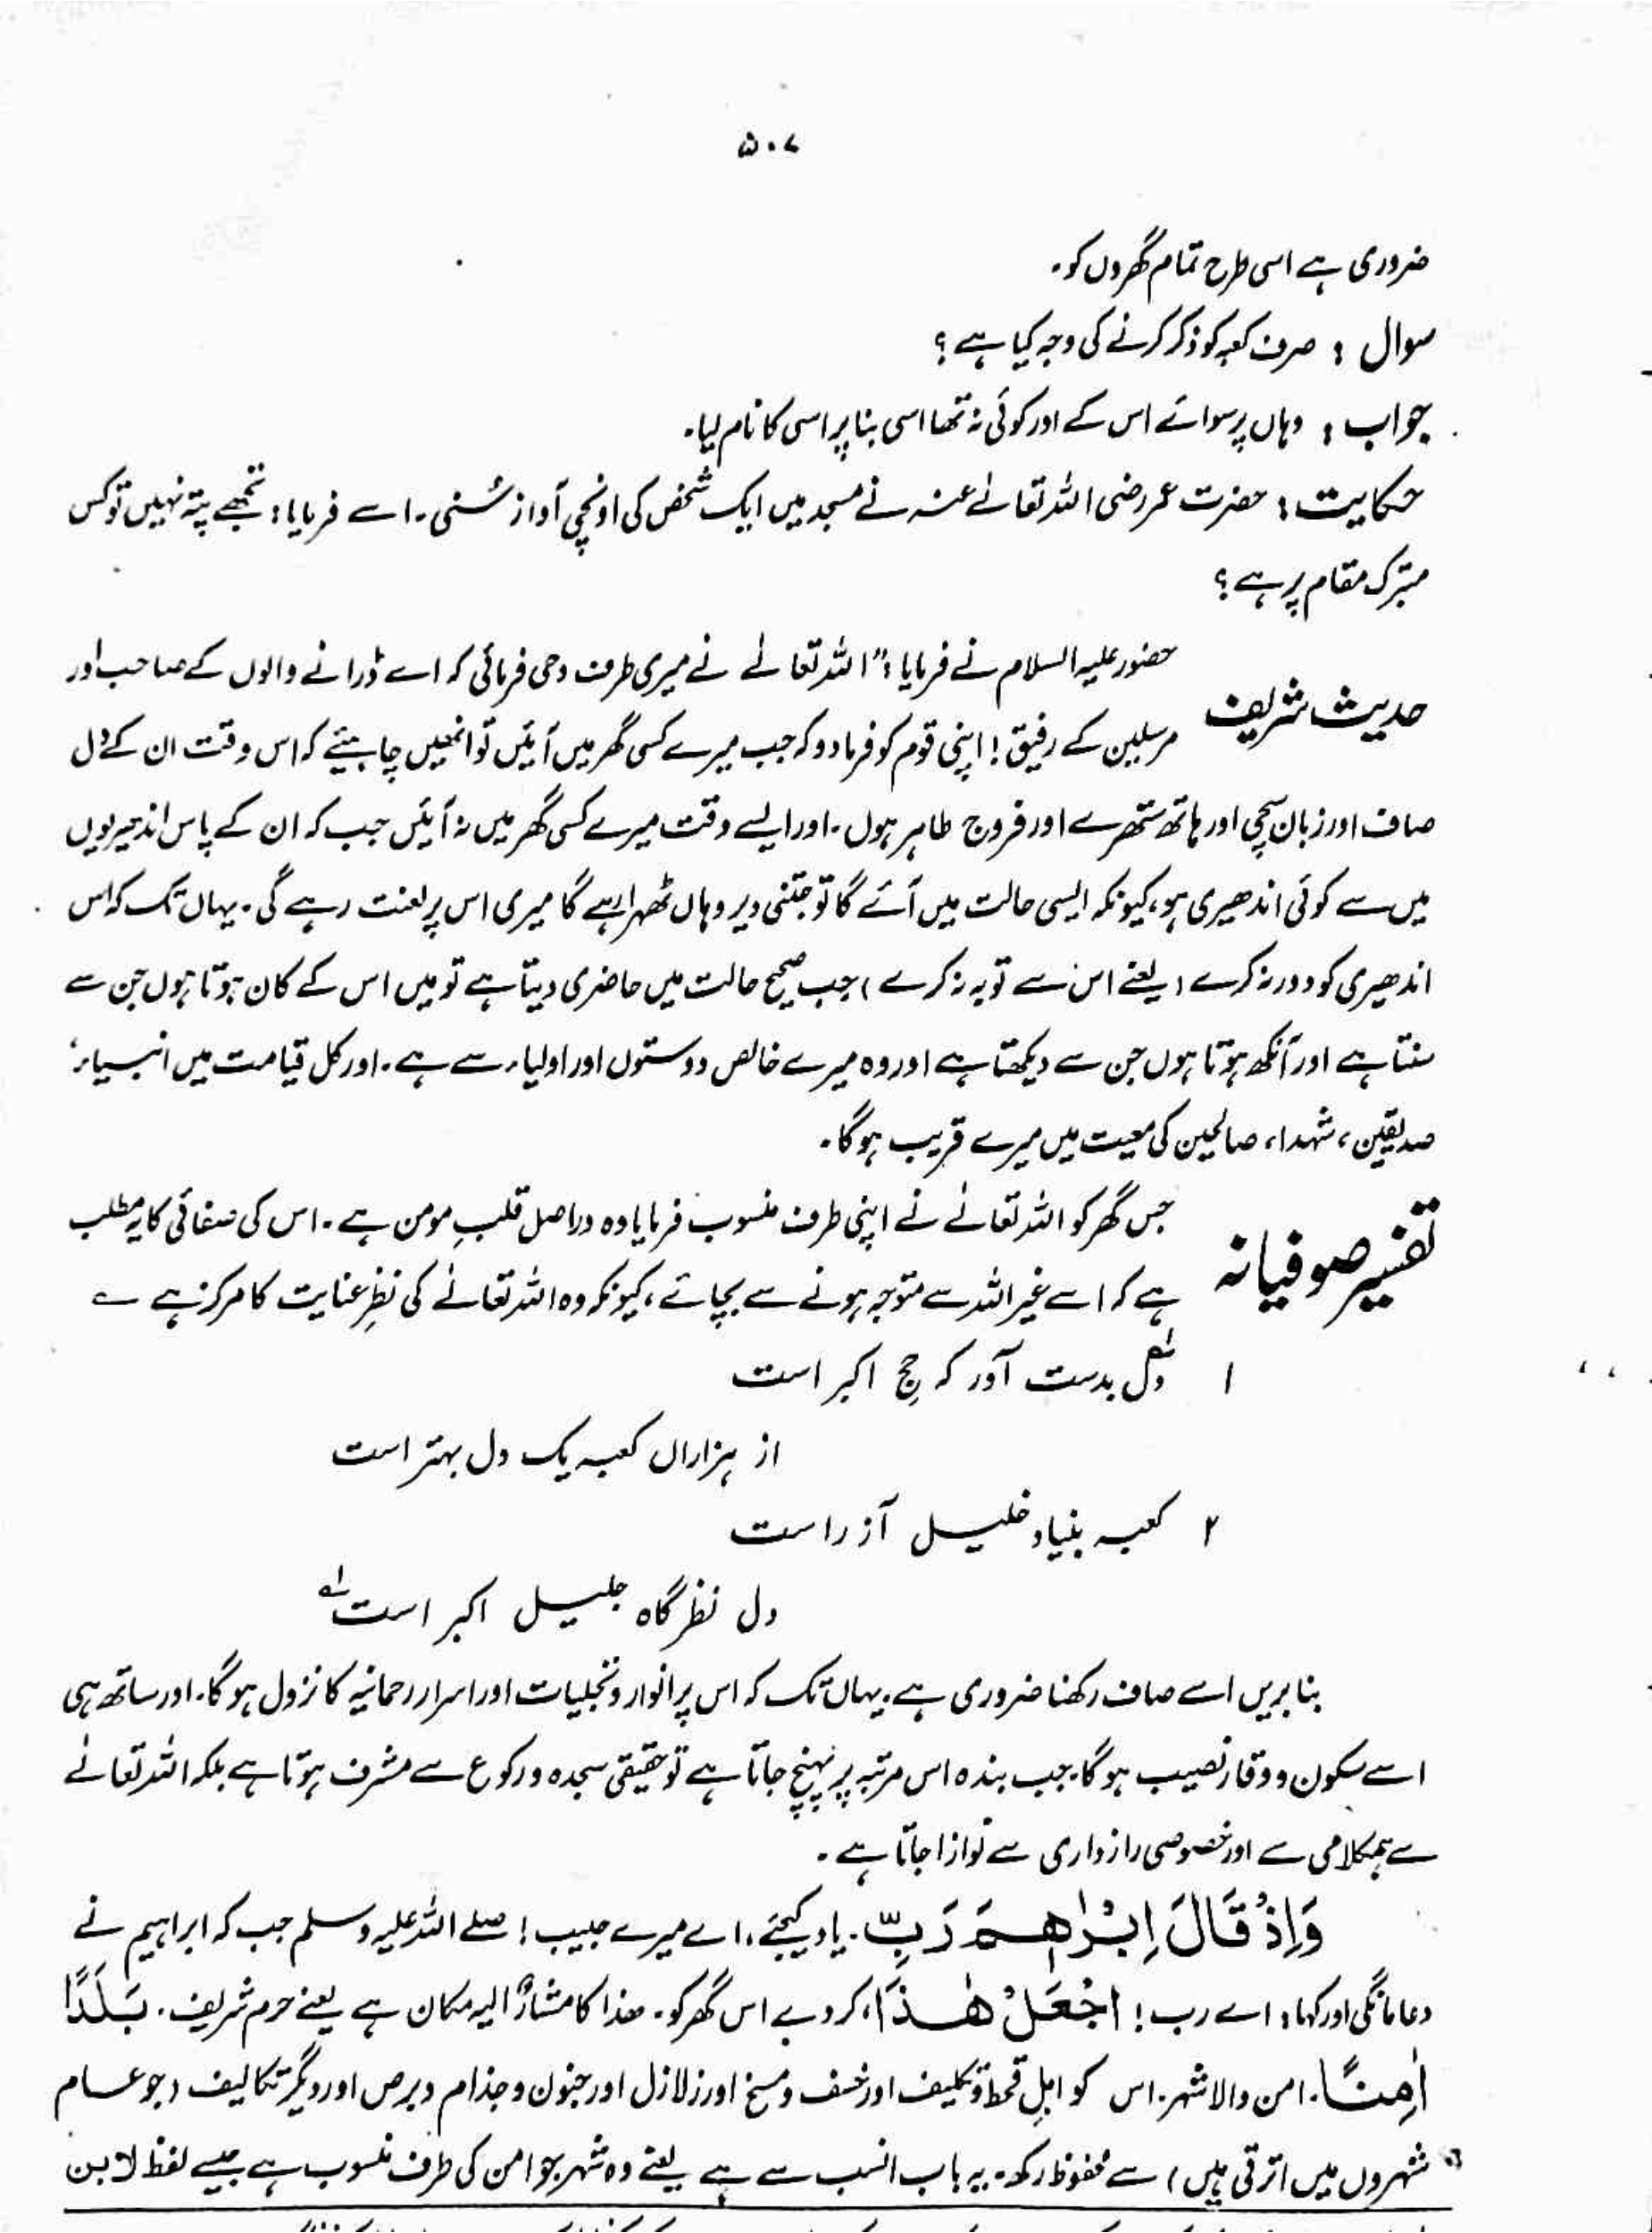 ۵۰۷
ضروری ہے اسی طرح تمام گھروں کو۔
سوال : صرف کعبہ کو ذکر کرنے کی وجہ کیا ہے ؟
جواب : وہاں پر سوائے اس کے اور کوئی نہ تھا اسی بنا پر اسی کا نام لیا۔
حکایت : حضرت عمر رضی اللہ تعالےٰ عنہ نے مسجد میں ایک شخص کی اونچی آواز سُنی۔ اسے فرمایا : تجھے پتہ نہیں تو کس
متبرک مقام پر ہے ؟
حضور علیہ السلام نے فرمایا : " اللہ تعالےٰ نے میری طرف وحی فرمائی کہ اے ڈرانے والوں کے صاحب اور
حدیث شریف
مرسلین کے رفیق ! اپنی قوم کو فرما دو کہ جب میرے کسی گھر میں آئیں تو انھیں چاہیئے کہ اس وقت ان کے دل
صاف اور زبان سچی اور ہاتھ ستھرے اور فروج طاہر ہوں۔ اور ایسے وقت میرے کسی گھر میں نہ آئیں جب کہ ان کے پاس اندھیریوں
میں سے کوئی اندھیری ہو، کیونکہ ایسی حالت میں آئے گا تو جتنی دیر وہاں ٹھہرا رہے گا میری اس پر لعنت رہے گی۔ یہاں تک کہ اس
اندھیری کو دور نہ کرے (یعنے اس سے توبہ نہ کرے) جب صحیح حالت میں حاضری دیتا ہے تو میں اس کے کان ہوتا ہوں جن سے
سنتا ہے اور آنکھ ہوتا ہوں جن سے دیکھتا ہے اور وہ میرے خالص دوستوں اور اولیاء سے ہے۔ اور کل قیامت میں انبیاء،
صدیقین، شہدا، صالحین کی معیت میں میرے قریب ہوگا۔
جس گھر کو اللہ تعالےٰ نے اپنی طرف منسوب فرمایا وہ دراصل قلبِ مومن ہے۔ اس کی صفائی کا یہ مطلب
تفسیر صوفیانہ
ہے کہ اسے غیر اللہ سے متوجہ ہونے سے بچائے، کیونکہ وہ اللہ تعالےٰ کی نظرِ عنایت کا مرکز ہے ؎
۱ دل بدست آور کہ حج اکبر است
از ہزاراں کعبہ یک دل بہتر است
۲ کعبہ بنیاد خلیل آزر است
دل نظر گاہ جلیل اکبر است لہ
بنا بریں اسے صاف رکھنا ضروری ہے۔ یہاں تک کہ اس پر انوار و تجلیات اور اسرار رحمانیہ کا نزول ہوگا۔ اور ساتھ ہی
اسے سکون و وقار نصیب ہوگا۔ جب بندہ اس مرتبہ پر پہنچ جاتا ہے تو حقیقی سجدہ و رکوع سے مشرف ہوتا ہے بلکہ اللہ تعالےٰ
سے ہمکلامی سے اور خصوصی رازداری سے نوازا جاتا ہے۔
وَاِذْ قَالَ اِبْرٰھٖمَ رَبِّ۔ یاد کیجئے، اے میرے حبیب! صلے اللہ علیہ وسلم جب کہ ابراہیم نے
دعا مانگی اور کہا : اے رب ! اجْعَلْ ھٰذَا، کر دے اس گھر کو۔ ھذا کا مشارٌ الیہ مکان ہے یعنے حرم شریف۔ بَلَدًا
اٰمِنًا۔ امن والا شہر۔ اس کو اہلِ قحط و تکلیف اور خسف و مسخ اور زلازل اور جنون و جذام و برص اور دیگر تکالیف (جو عام
شہروں میں اترتی ہیں) سے محفوظ رکھ۔ یہ باب النسب سے ہے یعنے وہ شہر جو امن کی طرف منسوب ہے جیسے لفظ لابن